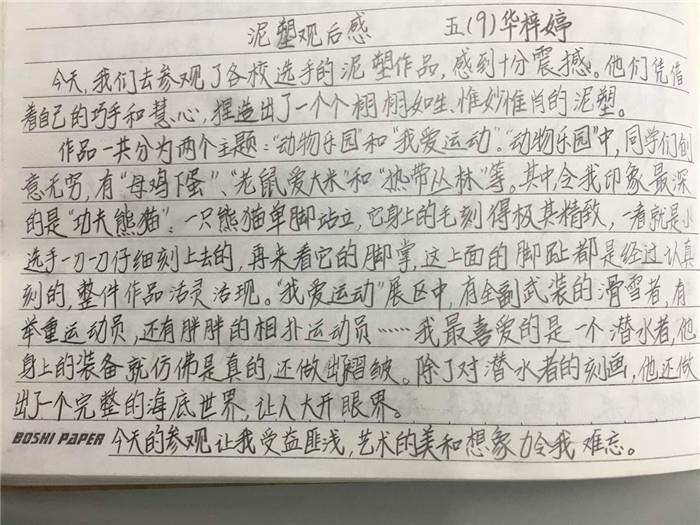 泥塑观后感 五(9)华梓婷
今天,我们去参观了各校选手的泥塑作品,感到十分震撼。他们凭借
着自己的巧手和慧心,捏造出了一个个栩栩如生、惟妙惟肖的泥塑。
作品一共分为两个主题:“动物乐园”和“我爱运动”。“动物乐园”中,同学们创
意无穷,有“母鸡下蛋”、“老鼠爱大米”和“热带丛林”等。其中,令我印象最深
的是“功夫熊猫”:一只熊猫单脚站立,它身上的毛刻得极其精致,一看就是小
选手一刀一刀仔细刻上去的,再来看它的脚掌,这上面的脚趾都是经过认真
刻的,整件作品活灵活现。“我爱运动”展区中,有全副武装的滑雪者,有
举重运动员,还有胖胖的相扑运动员……我最喜爱的是一个潜水者,他
身上的装备就仿佛是真的,还做出褶皱。除了对潜水者的刻画,他还做
出了一个完整的海底世界,让人大开眼界。
BOSHI PAPER 今天的参观让我受益匪浅,艺术的美和想象力令我难忘。